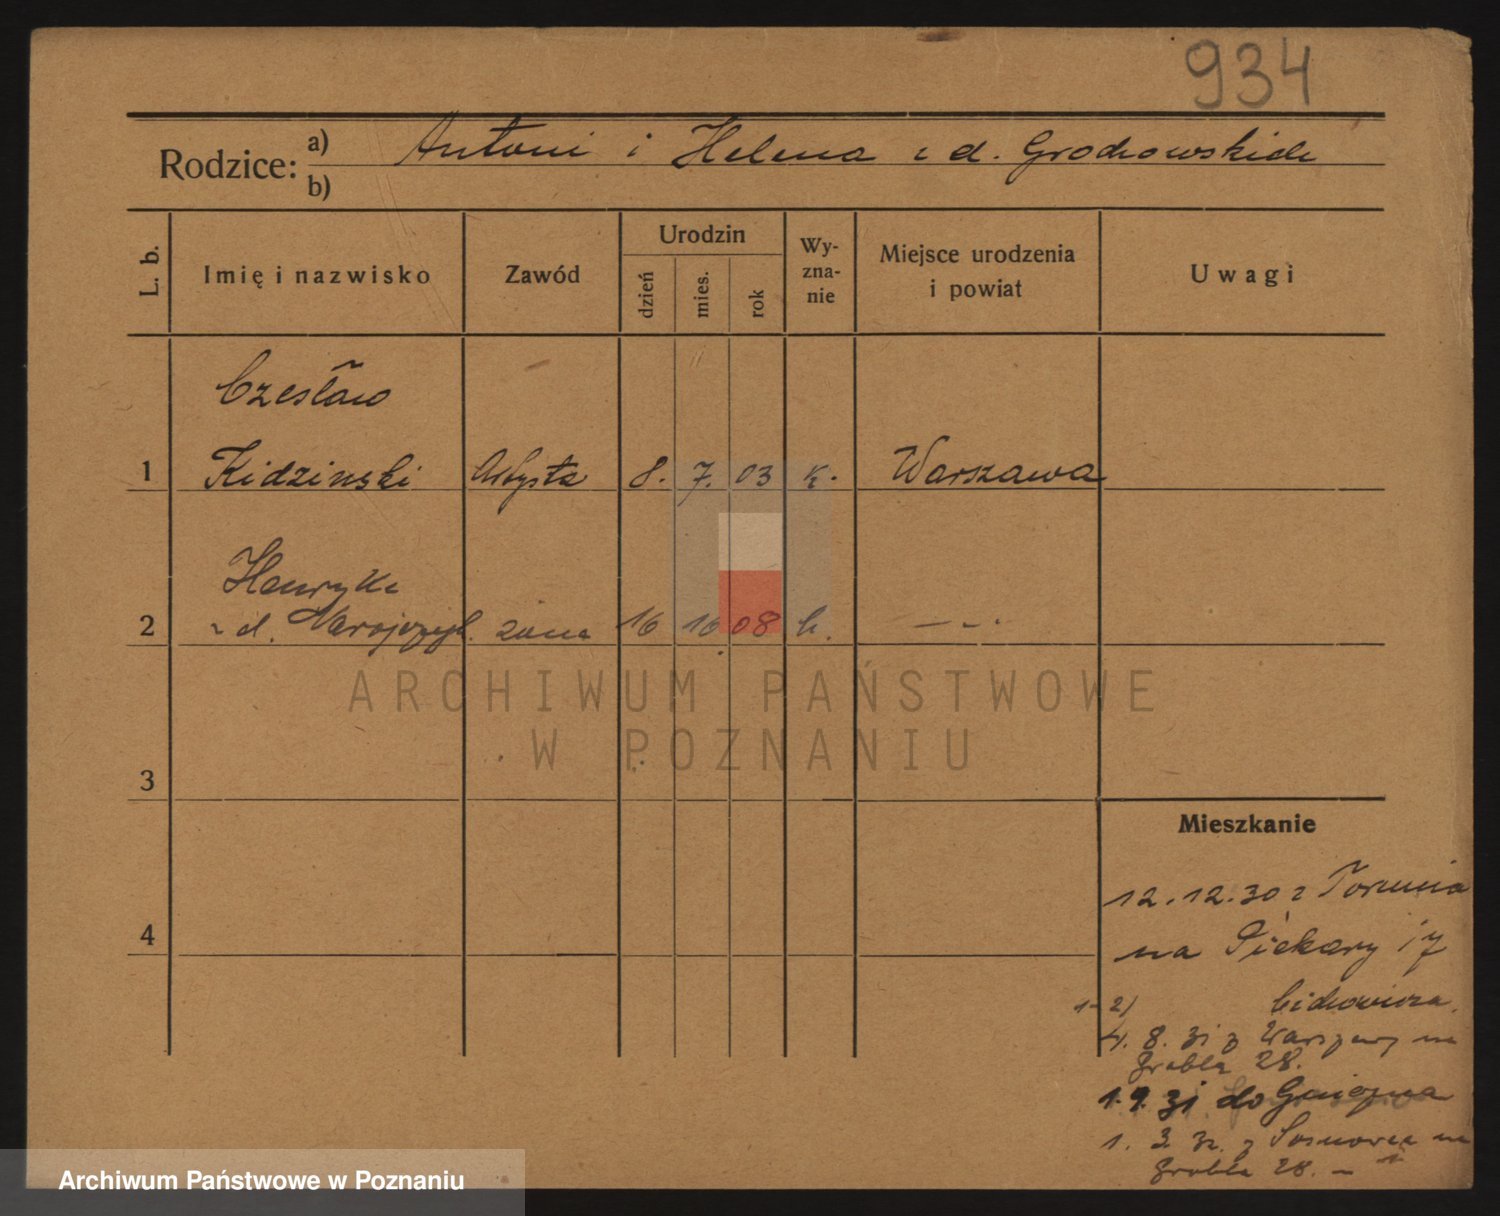 934
Rodzice: a) Antoni i Helena z d. Grochowskich
b)
L. b.
Imię i nazwisko
Zawód
Urodzin
dzień
mies.
rok
Wy-
zna-
nie
Miejsce urodzenia
i powiat
Uwagi
Czesław
1 Kidzinski Artysta 8. 7. 03 k. Warszawa
Henryka
2 z d. żona 16 10 08 k. — - -
3
4
Mieszkanie
12.12.30 z Torunia
na Piekary 17
1-2) Cichowicza.
4. 8. 31 z Warszawy na
Grobla 28.
1.9.31 do Gniezna
1. 3. 32. z Sosnowca na
Grobla 28. –
ARCHIWUM PAŃSTWOWE
W POZNANIU
Archiwum Państwowe w Poznaniu